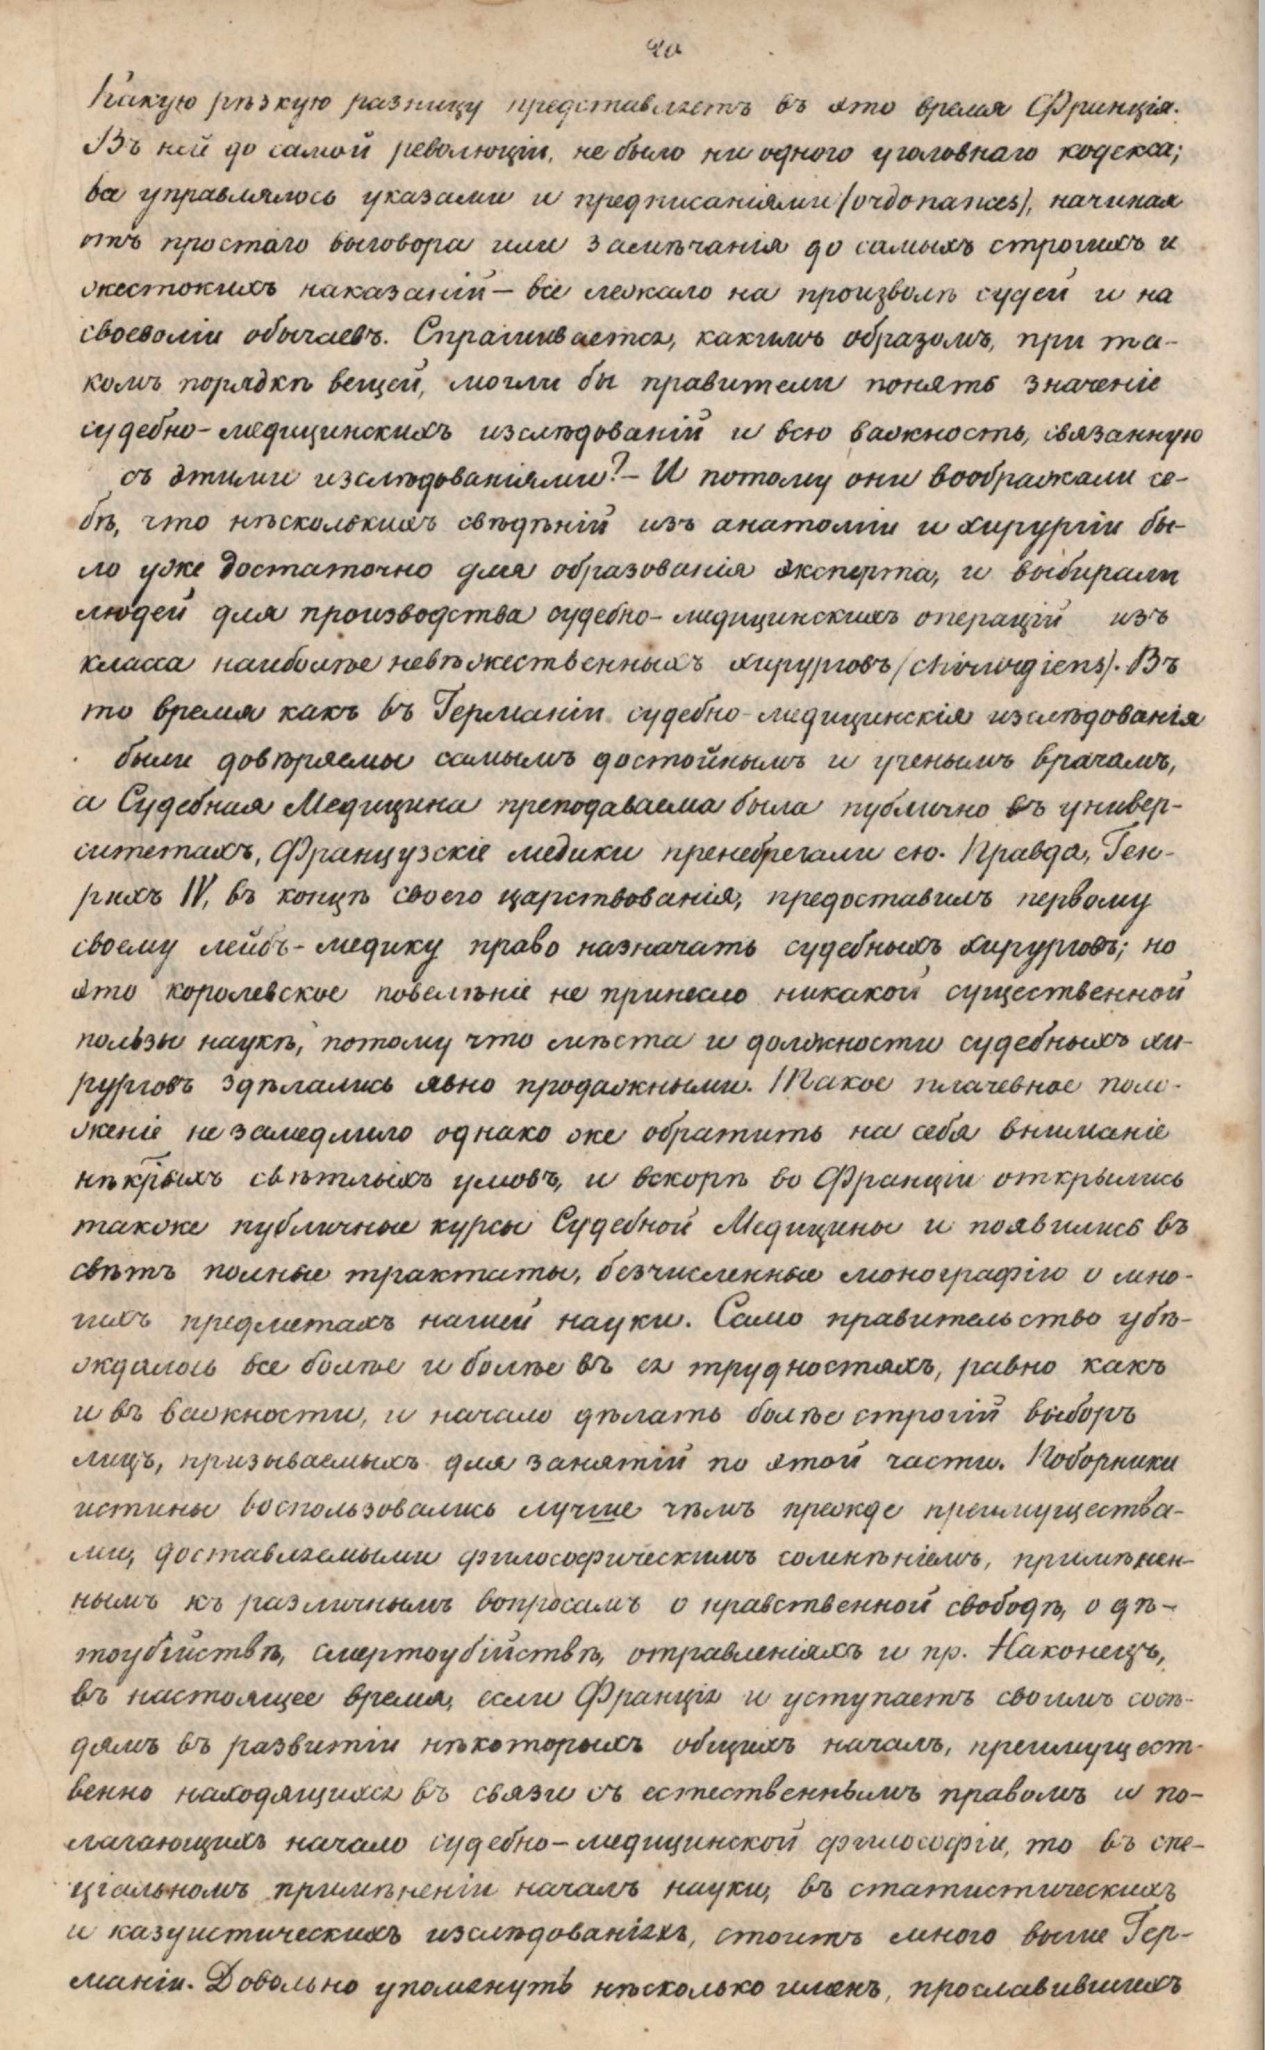 20
Какую рѣзкую разницу представляетъ въ это время Франція.
Въ ней до самой революціи, не было ни одного уголовнаго кодекса;
ва управлялось указами и предписаніями (ordonances), начиная
отъ простаго выговора или замѣчанія до самыхъ строгихъ и
жестокихъ наказаній — все лежало на произволѣ судей и на
своеволіи обычаевъ. Спрашивается, какимъ образомъ, при та-
комъ порядкѣ вещей, могли бы правители понять значеніе
судебно-медицинскихъ изслѣдованій и всю важность, связанную
съ этими изслѣдованіями? — И потому они воображали се-
бѣ, что нѣсколькихъ свѣдѣній изъ анатоміи и хирургіи бы-
ло уже достаточно для образованія эксперта, и выбирали
людей для производства судебно-медицинскихъ операцій изъ
класса наиболѣе невѣжественныхъ хирурговъ (chirurgiens). Въ
то время какъ въ Германіи судебно-медицинскія изслѣдованія
были довѣряемы самымъ достойнымъ и ученымъ врачамъ,
а Судебная Медицина преподаваема была публично въ универ-
ситетахъ, Французскіе медики пренебрегали ею. Правда, Ген-
рихъ IV, въ концѣ своего царствованія, предоставилъ первому
своему лейбъ-медику право назначать судебныхъ хирурговъ; но
это королевское повелѣніе не принесло никакой существенной
пользы наукѣ, потому что мѣста и должности судебныхъ хи-
рурговъ здѣлались явно продажными. Такое плачевное поло-
женіе не замедлило однако же обратить на себя вниманіе
нѣкрыхъ свѣтлыхъ умовъ, и вскорѣ во Франціи открылись
также публичные курсы Судебной Медицины и появились въ
свѣтъ полные трактаты, безчисленные монографіи о мно-
гихъ предметахъ нашей науки. Само правительство убѣ-
ждалось все болѣе и болѣе въ ея трудностяхъ, равно какъ
и въ важности, и начало дѣлать болѣе строгій выборъ
лицъ, призываемыхъ для занятій по этой части. Поборники
истины воспользовались лучше чѣмъ прежде преимущества-
ми, доставляемыми философическимъ сомнѣніемъ, примѣнен-
нымъ къ различнымъ вопросамъ о нравственной свободѣ, о дѣ-
тоубійствѣ, смертоубійствѣ, отравленіяхъ и пр. Наконецъ,
въ настоящее время, если Франція и уступаетъ своимъ сосѣ-
дямъ въ развитіи нѣкоторыхъ общихъ началъ, преимущест-
венно находящихся въ связи съ естественнымъ правомъ и по-
лагающихъ начало судебно-медицинской философіи, то въ спе-
ціальномъ примѣненіи началъ науки, въ статистическихъ
и казуистическихъ изслѣдованіяхъ, стоитъ много выше Гер-
маніи. Довольно упомянуть нѣсколько именъ, прославившихъ